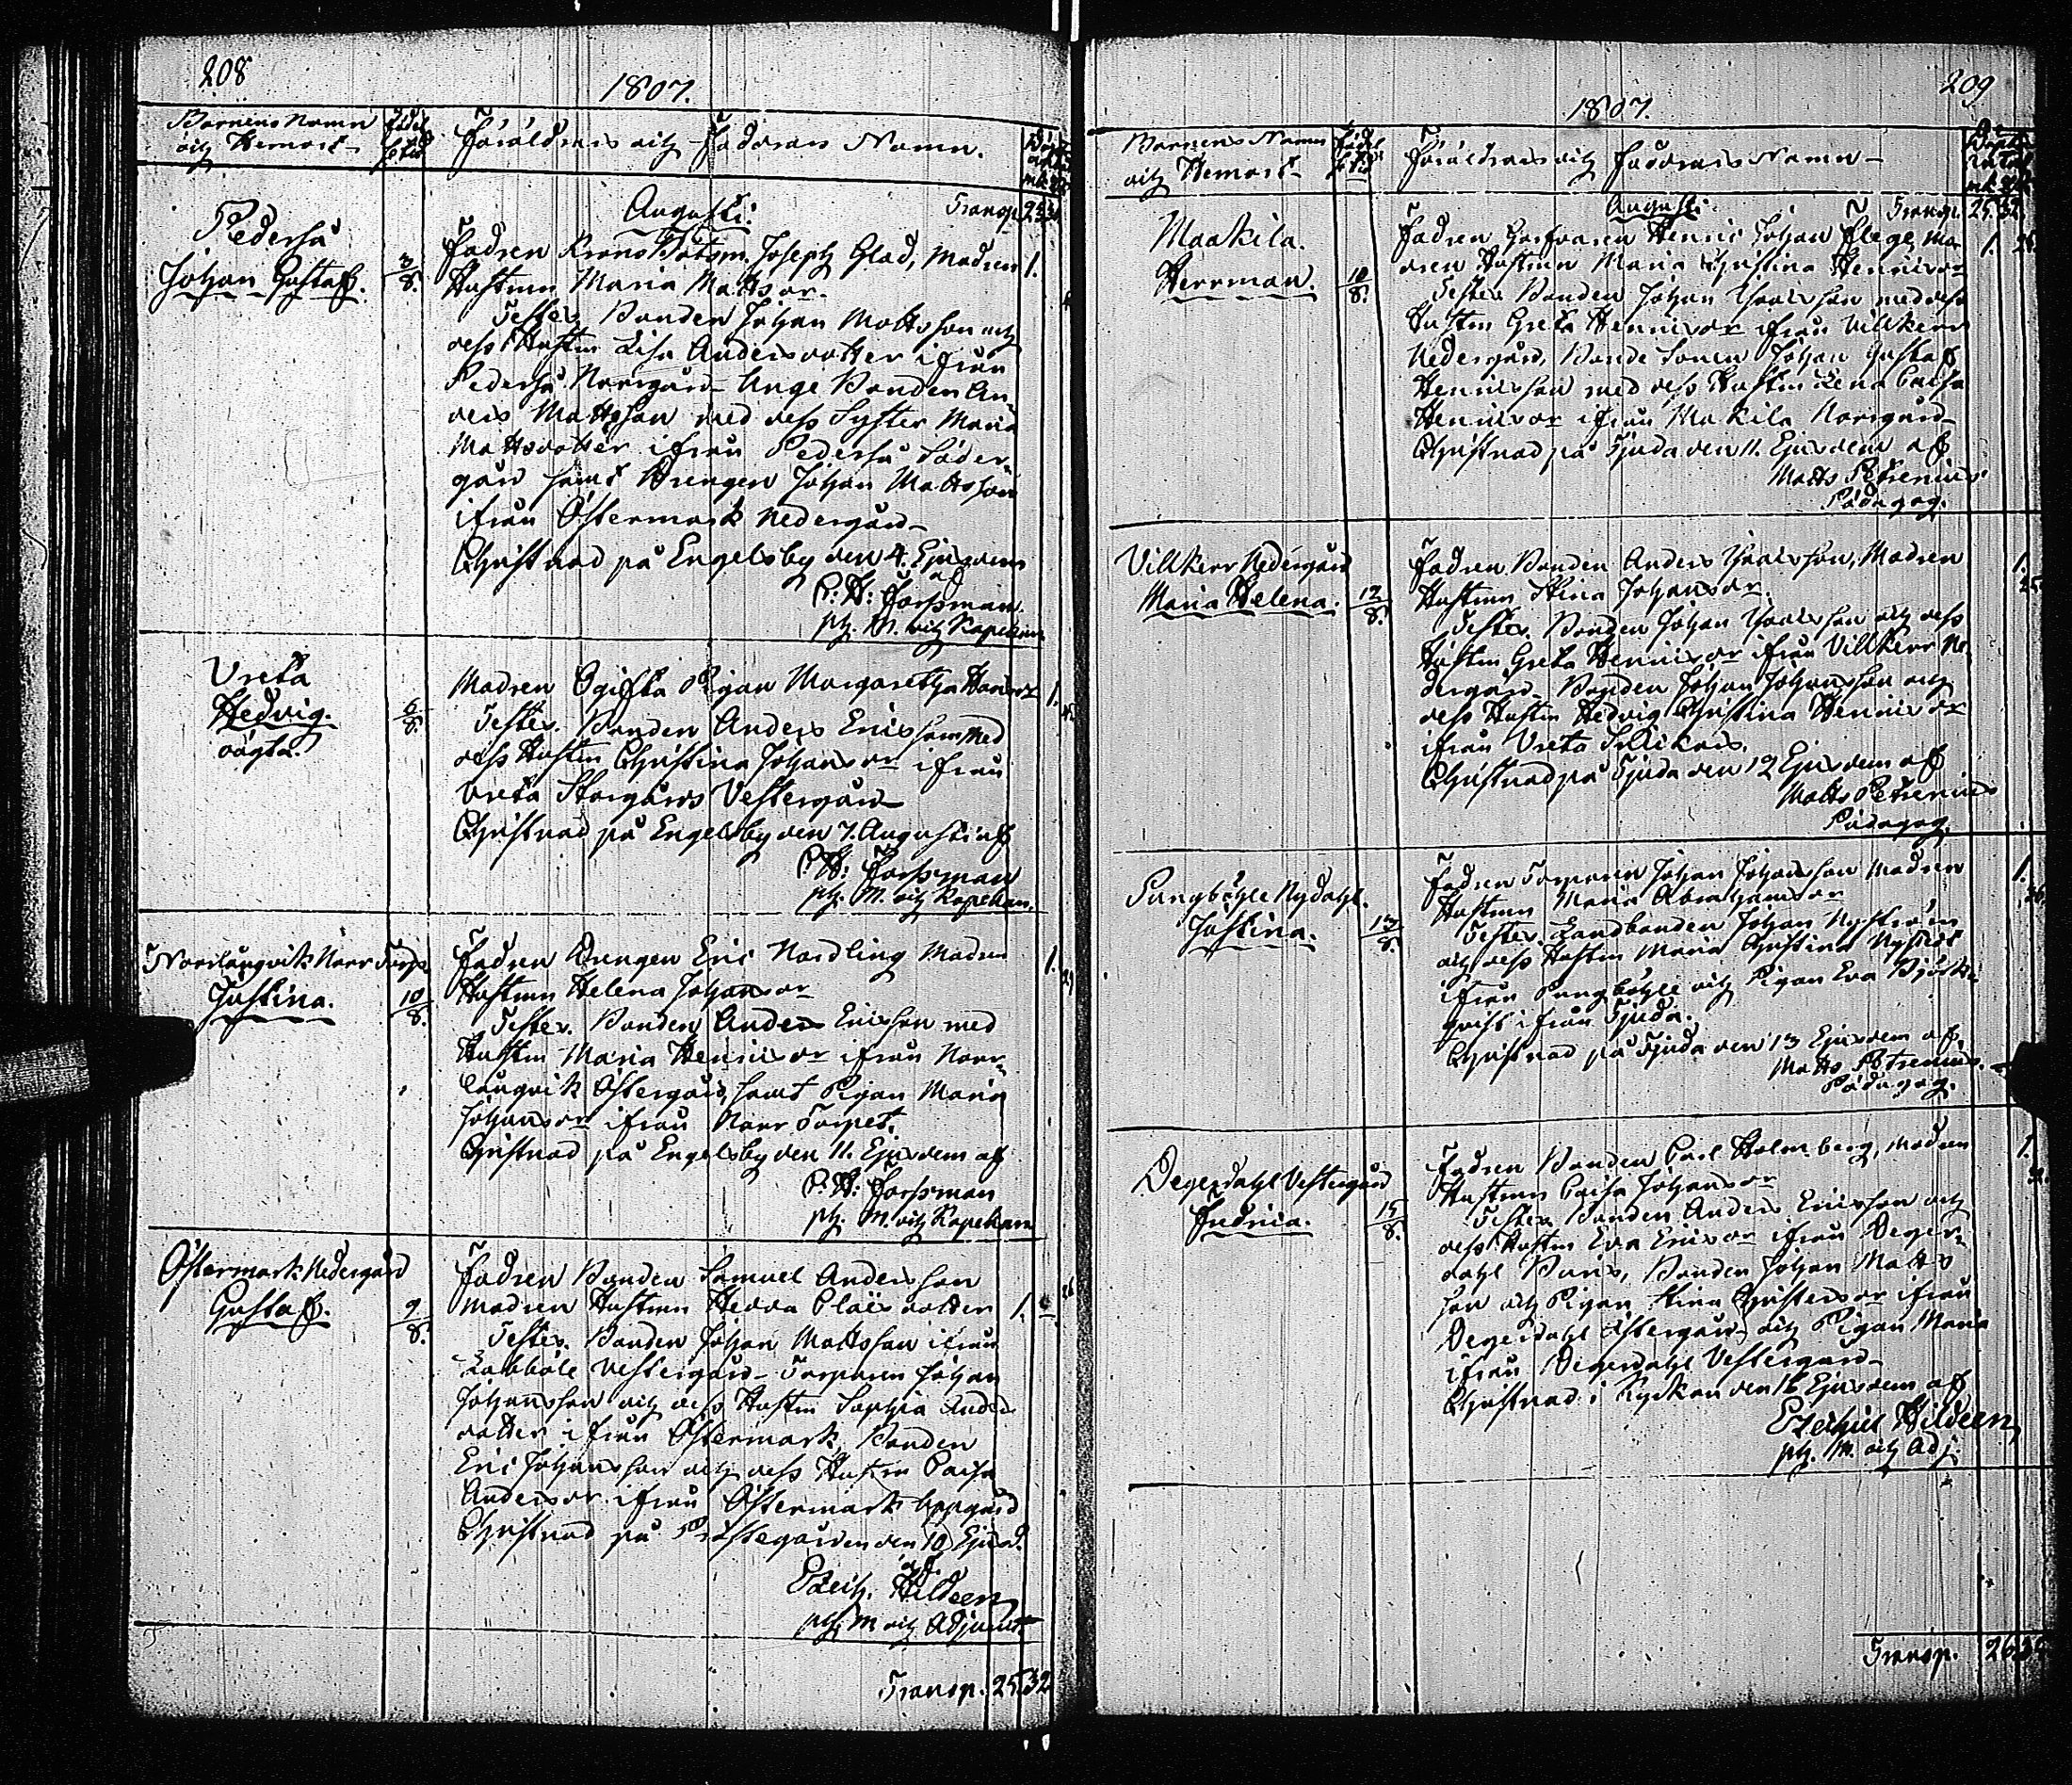 208
1807.
Barnens Namn
och Hemort
Föräldrars och Faddrars Namn.
Augusti.
Transp.
Pederså
Johan Gustaf.
3/8.
Fadren Krono Båtsm. Joseph Glad, Modren
1.
Hustrun Maria Mattsdr.
Testes. Bonden Johan Mattsson och
dess Hustru Lisa Andersdotter ifrån
Pederså Norrgård Unge Bonden An-
ders Mattsson med dess Syster Maria
Mattsdotter ifrån Pederså Söder-
gård samt Drengen Johan Mattsson
ifrån Östermark Nedergård
Christnad på Engelsby den 4. Ejusdem
af
P. H: Forssman.
ph. M. och Kapellan
Vreta
Hedvig.
oägta.
6/8.
Modren Ogifta Pigan Margaretha
1.
Testes. Bonden Anders Ericsson med
dess Hustru Christina Johansdr ifrån
Vreta Storgårds Vestergård
Christnad på Engelsby den 7. Augusti af
P. H: Forssman
ph. M. och Kapellan.
Norrlångvik Norr Torp.
Justina.
10/8.
Fadren Drengen Eric Nordling Modren
1.
Hustrun Helena Johansdr
Testes. Bonden Anders Ericsson med
Hustru Maria Henricsdr ifrån Norr-
långvik Östergård, samt Pigan Maria
Johansdr ifrån Norr Torpet.
Christnad på Engelsby den 11. Ejusdem af
P. H: Forssman
ph. M. och Kapellan
Östermark Nedergård
Gustaf.
9/8.
Fadren Bonden Samuel Andersson
Modren Hustrun Hedda Claësdotter
1.
Testes. Bonden Johan Mattsson ifrån
Labböle Vestergård Torparen Johan
Johansson och dess Hustru Sophia Anders
dotter ifrån Östermark, Bonden
Eric Johansson och dess Hustru Caisa
Andersdr ifrån Östermark Uppgård
Christnad på Prästegården den 10 Ejusd.
af
Ezech. Hildeen
ph. M och Adjunct
Transp. 25.32
209
1807.
Barnens Namn
och Hemort
Föräldrars och Faddrars Namn
Augusti
Transp. 25.32.
Maakila.
Herrman.
10/8.
Fadren Henric Johan Flege, Mo-
1.
dren Hustrun Maria Christina Henricsdr
Testes Bonden Johan med dess
Hustru Greta Henricsdr ifrån Villkerr
Nedergård, Bonde Sonen Johan Gustaf
Henricsson med dess Hustru Lena Caisa
Henricsdr ifrån Makila Norrgård
Christnad på Tjuda den 11. Ejusdem af
Matts Petrenius
Pädagog.
Villkerr Nedergård
Maria Helena.
12/8.
Fadren Bonden Anders Modren
1.
Hustrun Stina Johansdr.
Testes. Bonden Johan och dess
Hustru Greta Henricsdr ifrån Villkerr Ne-
dergård Bonden Johan Johansson och
dess Hustru Hedvig Christina Henricsdr
ifrån Vreta
Christnad på Tjuda den 12 Ejusdem af
Matts Petrenius
Pädagog.
Pungböhle Nydahl.
Justina.
13/8.
Fadren Torparen Johan Johansson Modren
1.
Hustrun Maria Abrahamsdr
Testes. Landbonden Johan Nyström
och dess Hustru Maria Christina
ifrån Pungböhle och Pigan Eva Björk-
qvist ifrån Tjuda.
Christnad på Tjuda den 13 Ejusdem af
Matts Petrenius.
Pädagog.
Degerdahl Vestergård
Fredrica.
15/8.
Fadren Bonden Carl Holmberg, Modren
1.
Hustrun Caisa Johansdr
Testes Bonden Anders Ericsson och
dess Hustru Eva Ericsdr ifrån Deger-
dahl Bonden Johan Matts
son och Pigan Stina Christersdr ifrån
Degerdahl Östergård och Pigan Maria
ifrån Degerdahl Vestergård
Christnad i Kyrkan den 16 Ejusdem af
Ezechiel Hildeen,
ph. M. och Adj.
Transp.